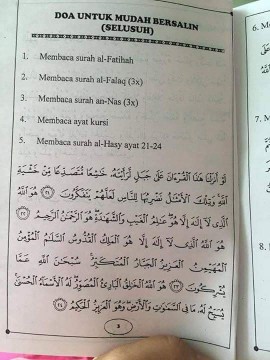 DOA UNTUK MUDAH BERSALIN
(SELUSUH)
1. Membaca surah al-Fatihah
2. Membaca surah al-Falaq (3x)
3. Membaca surah an-Nas (3x)
4. Membaca ayat kursi
5. Membaca surah al-Hasy ayat 21-24
لَوْ أَنزَلْنَا هَٰذَا الْقُرْءَانَ عَلَىٰ جَبَلٍ لَّرَأَيْتَهُ خَٰشِعًا مُّتَصَدِّعًا مِّنْ خَشْيَةِ
اللَّهِ وَتِلْكَ الْأَمْثَٰلُ نَضْرِبُهَا لِلنَّاسِ لَعَلَّهُمْ يَتَفَكَّرُونَ ﴿٢١﴾ هُوَ اللَّهُ
الَّذِى لَآ إِلَٰهَ إِلَّا هُوَ عَٰلِمُ الْغَيْبِ وَالشَّهَٰدَةِ هُوَ الرَّحْمَٰنُ الرَّحِيمُ ﴿٢٢﴾
هُوَ اللَّهُ الَّذِى لَآ إِلَٰهَ إِلَّا هُوَ الْمَلِكُ الْقُدُّوسُ السَّلَٰمُ الْمُؤْمِنُ
الْمُهَيْمِنُ الْعَزِيزُ الْجَبَّارُ الْمُتَكَبِّرُ سُبْحَٰنَ اللَّهِ عَمَّا
يُشْرِكُونَ ﴿٢٣﴾ هُوَ اللَّهُ الْخَٰلِقُ الْبَارِئُ الْمُصَوِّرُ لَهُ الْأَسْمَآءُ الْحُسْنَىٰ
يُسَبِّحُ لَهُ مَا فِى السَّمَٰوَٰتِ وَالْأَرْضِ وَهُوَ الْعَزِيزُ الْحَكِيمُ ﴿٢٤﴾
3
6. M
7. M
8.